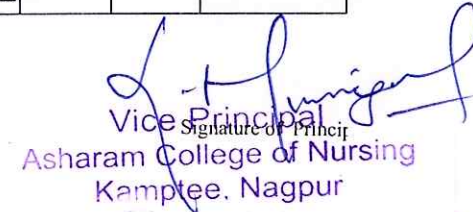 Vice Principal
Signature of Princip
Asharam College of Nursing
Kamptee, Nagpur